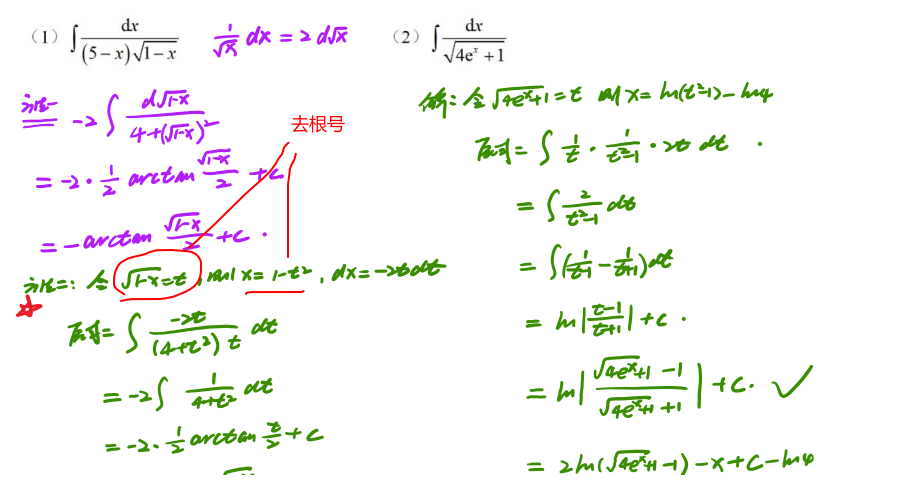 (1) ∫ dx / ((5−x)√(1−x))
1/√x dx = 2 d√x
方法一 −2 ∫ d√(1−x) / (4+(√(1−x))²)
= −2 · 1/2 arctan √(1−x)/2 + C
= −arctan √(1−x)/2 + C .
去根号
方法二: 令 √(1−x) = t, 则 x = 1−t², dx = −2t dt
原式 = ∫ −2t / ((4+t²) t) dt
= −2 ∫ 1/(4+t²) dt
= −2 · 1/2 arctan t/2 + C
(2) ∫ dx / √(4eˣ+1)
解: 令 √(4eˣ+1) = t 则 x = ln(t²−1) − ln4
原式 = ∫ 1/t · 1/(t²−1) · 2t dt .
= ∫ 2/(t²−1) dt
= ∫ (1/(t−1) − 1/(t+1)) dt
= ln|(t−1)/(t+1)| + C .
= ln|(√(4eˣ+1) −1)/(√(4eˣ+1) +1)| + C. ✓
= 2ln(√(4eˣ+1) −1) − x + C − ln4